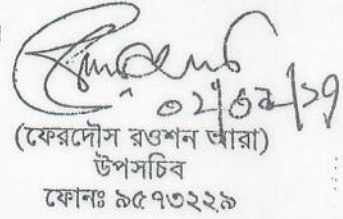 (ফেরদৌস রওশন আরা)
উপসচিব
ফোনঃ ৯৫৭৩২২৯